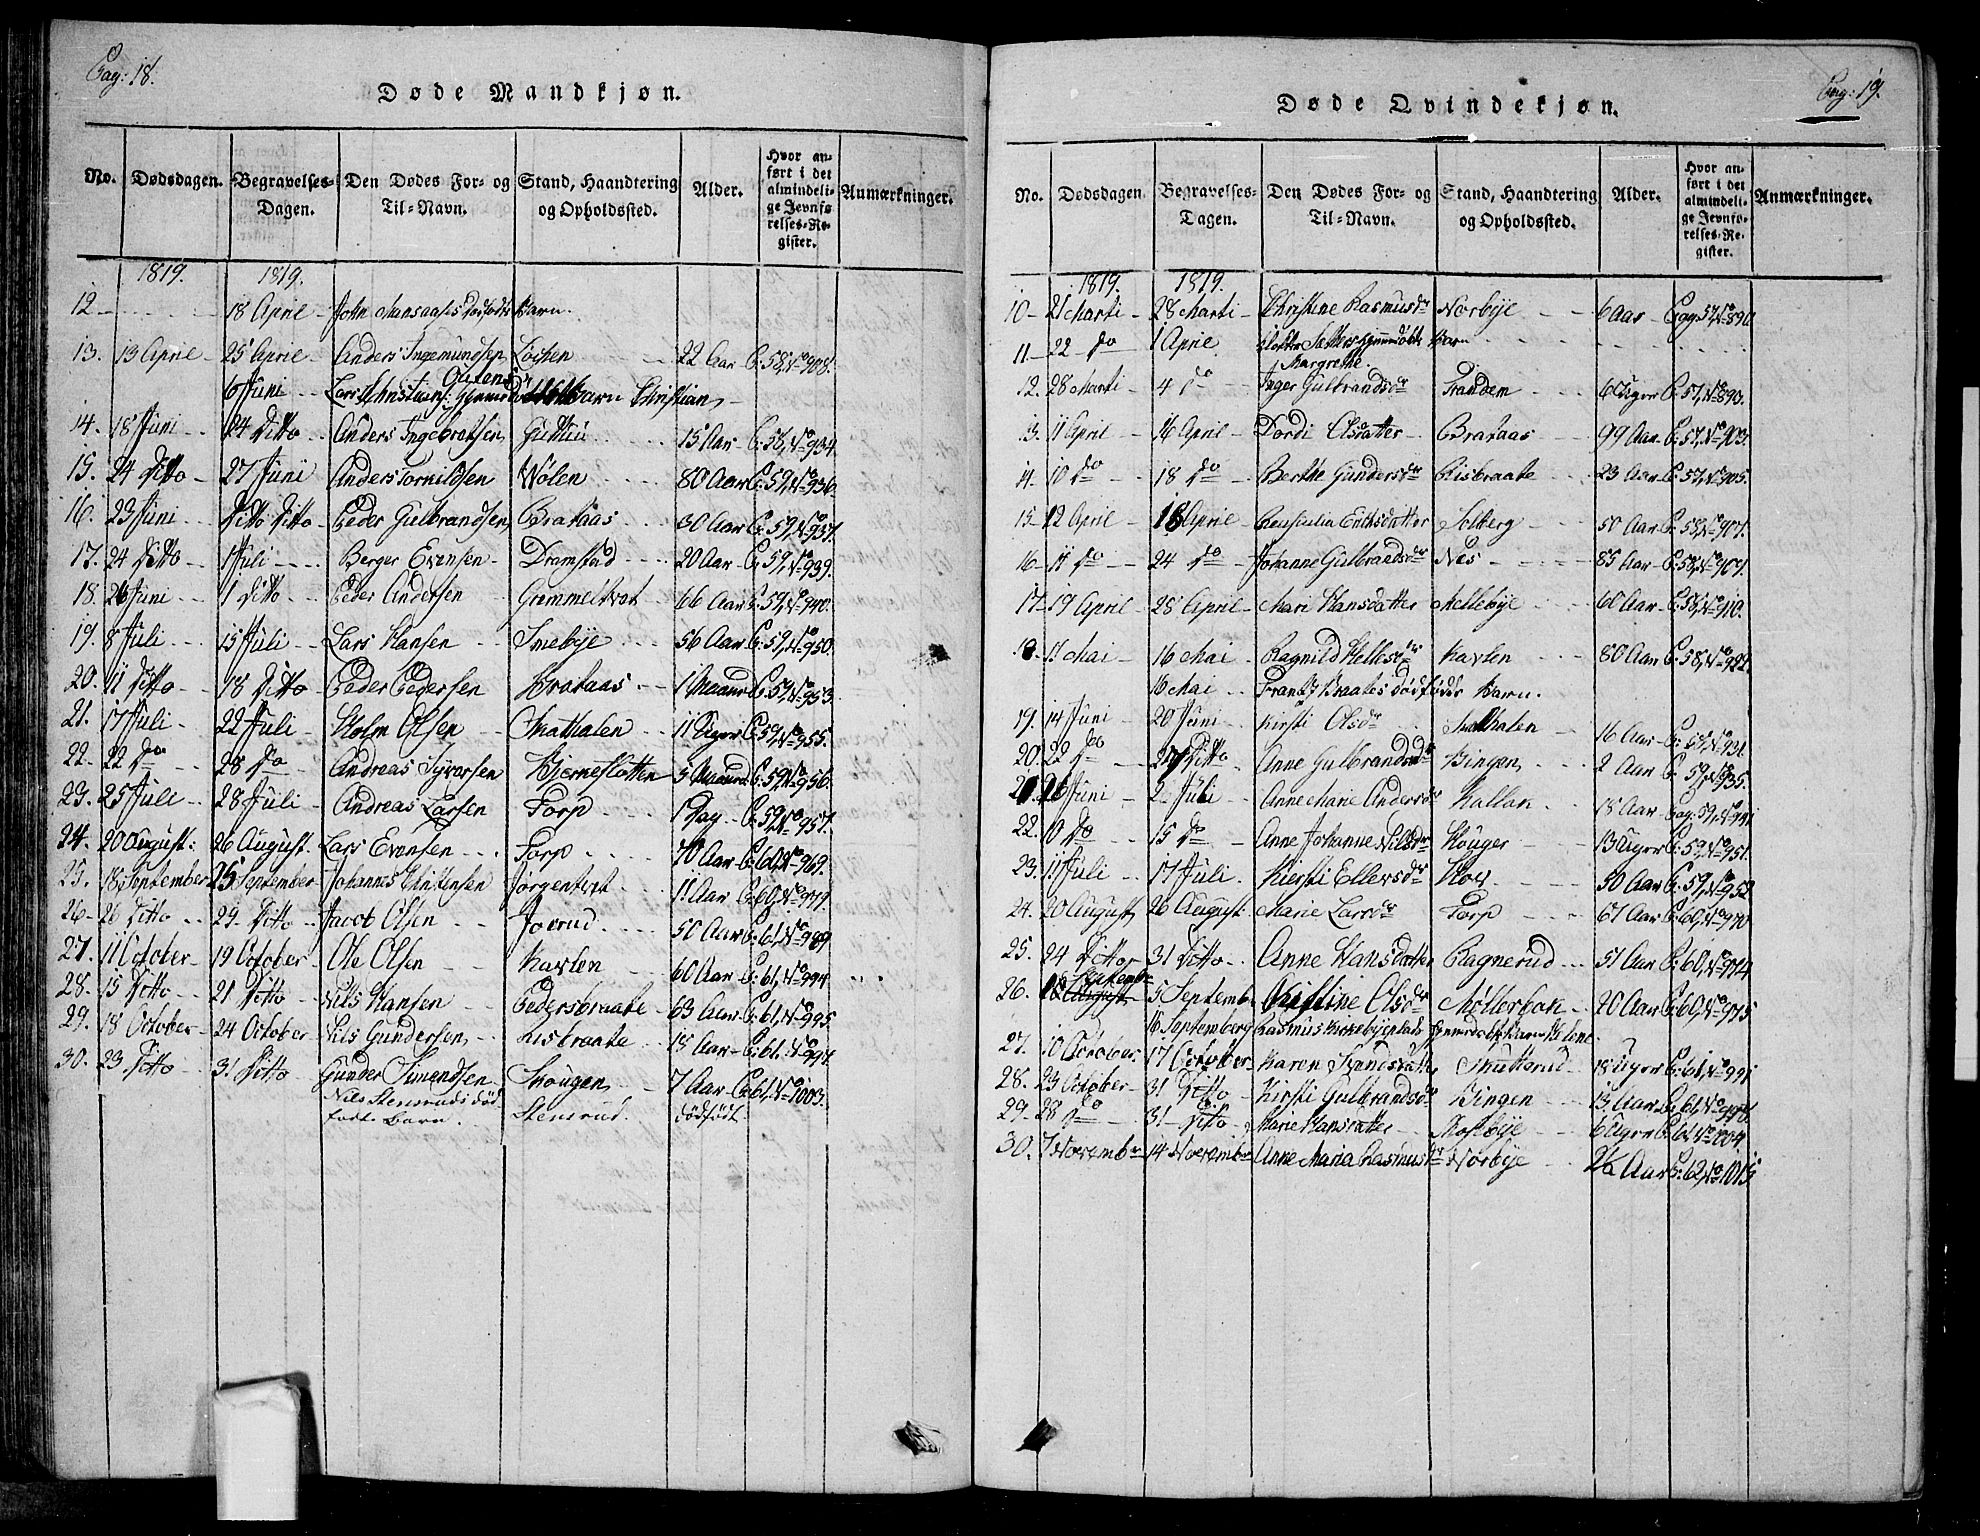 Pag: 18.
Døde Mandkjøn.
No. Dødsdagen. Begravelses-Dagen. Den Dødes For- og Til-Navn. Stand, Haandtering og Opholdssted. Alder. Hvor anført i det almindelige Jevnførelses-Register. Anmærkninger.
1819. 1819.
12 18 April John dødfødte Barn.
13. 13 April 25 April Anders Ingemundsen 22 Aar P: 58, No 908.
6 Juni Lars Christians: Barn Christian
14. 18 Juni 24 Ditto Anders Ingebretsen 15 Aar P: 58, No 934
15. 24 Ditto 27 Juni Anders Wølen 80 Aar P: 59, No 936.
16. 23 Juni Ditto Ditto Peder Gulbrandsen Brataas 30 Aar P: 59, No 937.
17. 24 Ditto 1 Juli Berger Evensen Dramstad 20 Aar P: 59, No 939.
18. 26 Juni 1 Ditto Peder Andersen 66 Aar P: 59, No 940.
19. 8 Juli 15 Juli Lars Hansen Smebye 56 Aar P: 59, No 950.
20. 11 Ditto 18 Ditto Peder Pedersen Brataas 1 Maaned P: 59, No 953.
21. 17 Juli 22 Juli Holm Olsen 11 Uger P: 59, No 955.
22. 22 Do 28 Do Andreas Syversen Bjerneslotten 5 P: 59, No 956.
23. 25 Juli 28 Juli Andreas Larsen Torp 1 Dag P: 59, No 957.
24. 20 August: 26 August. Lars Evensen Torp 70 Aar P: 60, No 969.
25. 18 September 25 September Johannes Christensen Jørgentvet 11 Aar P: 60, No 979.
26 26 Ditto 29. Ditto Jacob Olsen 50 Aar P: 61, No 989.
27. 11 October 19 October Ole Olsen Haxlen 60 Aar P: 61, No 994.
28. 15 Ditto 21 Ditto Nils Hansen Pedersbraate 63 Aar P: 61, No 995.
29. 18 October 24 October Nils Gundersen Risbraate 18 Aar P: 61, No 997.
30. 23 Ditto 31 Ditto Gunder Simensen Skougen 7 Aar P: 61, No 1003.
Nils Stensruds død
fødte Barn. Stensrud. dødfødt.
Pag: 19.
Døde Qvindekjøn.
No. Dødsdagen Begravelses-Dagen. Den Dødes For- og Til-Navn. Stand, Haandtering og Opholdssted. Alder. Hvor anført i det almindelige Jevnførelses-Register. Anmærkninger.
1819. 1819.
10 21 Marti 28 Marti Christine Rasmusdr Nørbye 6 Aar Pag. 57, No 890
11 22 do 1 April Barn
Margrethe.
12. 28 Marti 4 do Inger Gulbrandsdr Frandem 6 Uger P: 57, No 893.
13. 11 April 16 April Dordi Olsdatter Brataas 99 Aar P: 57, No 903.
14. 10 do 18 do Berthe Gundersdr Risbraate 23 Aar P: 57, No 905.
15. 12 April 18 April Ericsdatter Solberg 50 Aar P: 58, No 907.
16 11 do 24 do Johanne Gulbrandsdr Næs 85 Aar P: 58, No 909.
17 19 April 28 April Mari Hansdatter Mellebye 60 Aar P: 58, No 910.
18. 11 Mai 16 Mai Ragnild Hellesdr Haxlen 80 Aar P: 58, No 922.
16 Mai Frantz Braates dødfødde Barn.
19. 14 Juni 20 Juni Kirsti Olsdr 16 Aar P: 58, No 931.
20. 22 do 27 Ditto Anne Gulbrandsdr Bingen 2 Aar P: 59, No 935.
21. 26 Juni 2 Juli Anne Marie Andersdr Kallan 18 Aar Pag: 59, No 941
22. 10 do 15 do Anne Johanne Nilsdr Houger 13 Uger P: 59, No 951.
23. 11 Juli 17 Juli Kiersti Ellevsdr Hov 50 Aar P: 59, No 952
24. 20 August 26 August Marie Larsdr Torp 67 Aar P: 60, No 970
25. 24 Ditto 31 Ditto Anne Hansdatter Ragnerud 51 Aar P: 60, No 974
26. September 5 Septembr Kristine Olsdr Møllerbak 20 Aar P: 60, No 975
16 September Rasmus Kirkebyeplads Barn Helene.
27. 10 October 17 October Karen Svendsdatter Skutterud 18 Uger P: 61, No 991
28. 23 October 31 Ditto Kirsti Gulbrandsdr Bingen 13. Aar P: 61, No 998.
29. 28 do 31 Ditto Marie Hansdatter 6 Uger P: 61, No 1004.
30. 7 Novembr 14 Novembr Anne Maria Rasmusdr Nørbye 26 Aar P: 62, No 1015